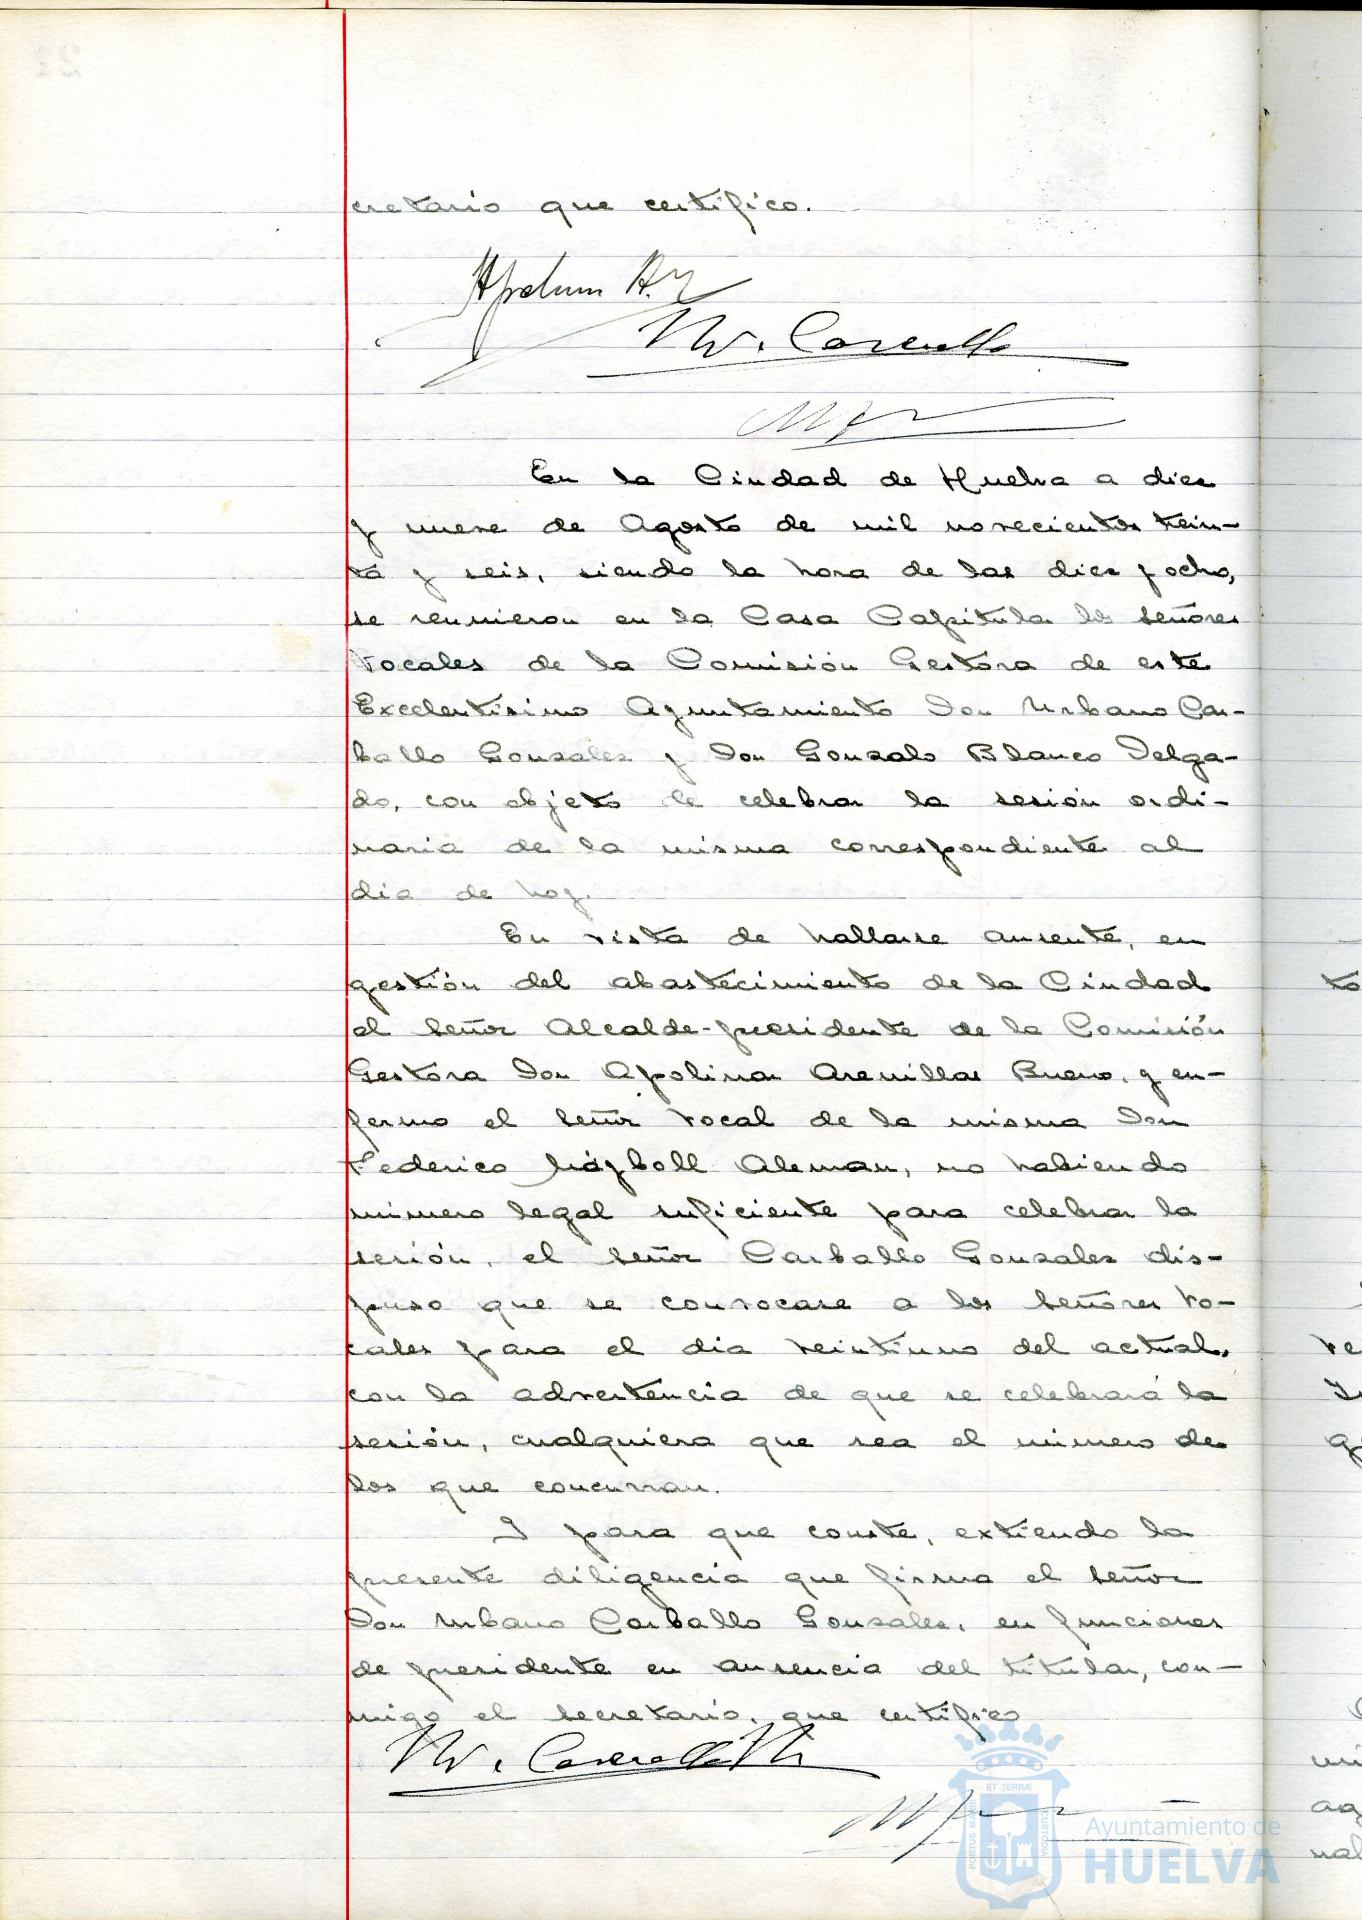 cretario que certifico.
En la Ciudad de Huelva a diez
y nueve de Agosto de mil novecientos trein-
ta y seis, siendo la hora de las diez y ocho,
se reunieron en la Casa Capitular los señores
Vocales de la Comisión Gestora de este
Excelentísimo Ayuntamiento Don Urbano Car-
ballo Gonzalez y Don Gonzalo Blanco Delga-
do, con objeto de celebrar la sesión ordi-
naria de la misma correspondiente al
dia de hoy.
En vista de hallarse ausente, en
gestión del abastecimiento de la Ciudad
el Señor Alcalde-presidente de la Comisión
Gestora Don Apolinar Arenillas Bueno, y en-
fermo el Señor Vocal de la misma Don
Federico Alemán, no habiendo
número legal suficiente para celebrar la
sesión, el Señor Carballo Gonzalez dis-
puso que se convocase a los Señores Vo-
cales para el dia veintiuno del actual,
con la advertencia de que se celebrará la
sesión, cualquiera que sea el número de
los que concurran.
Y para que conste, extiendo la
presente diligencia que firma el Señor
Don Urbano Carballo Gonzalez, en funciones
de presidente en ausencia del titular, con-
migo el Secretario, que certifico
Ayuntamiento de
HUELVA